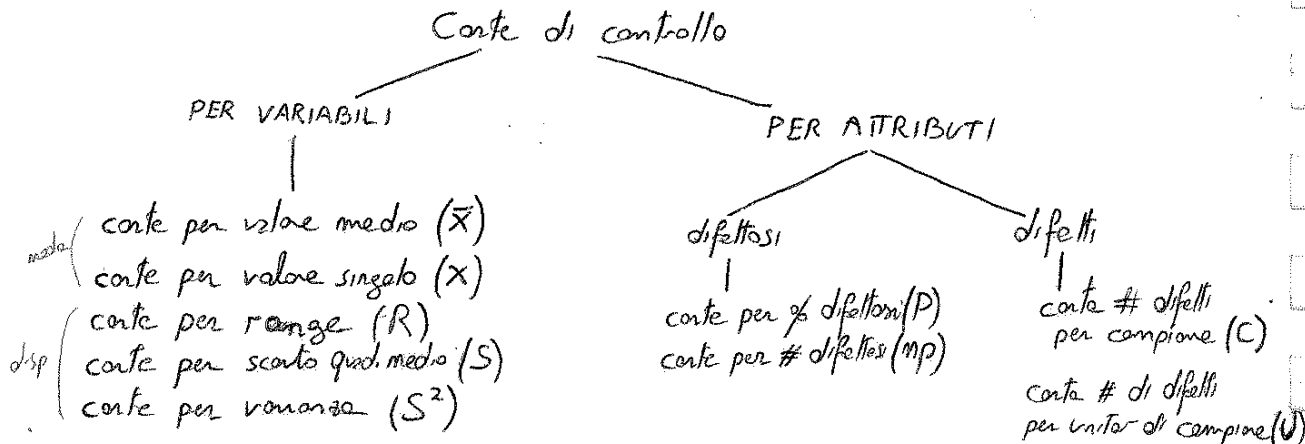 Carte di controllo
PER VARIABILI
PER ATTRIBUTI
media
carte per valore medio (x̄)
carte per valore singolo (x)
disp
carte per range (R)
carte per scarto quad. medio (S)
carte per varianza (S²)
difettosi
carte per % difettosi (P)
carte per # difettosi (np)
difetti
carta # difetti
per campione (C)
carta # di difetti
per unità di campione (U)